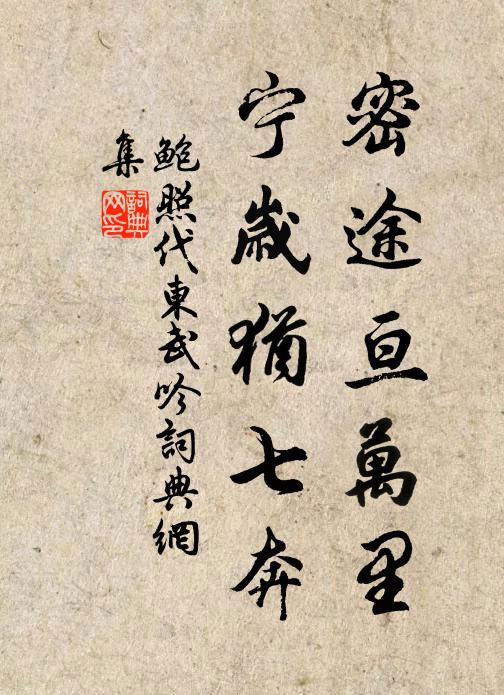 密途亘萬里
宁歲猶七奔
鲍照代東武吟詞典網
集
詞典網印